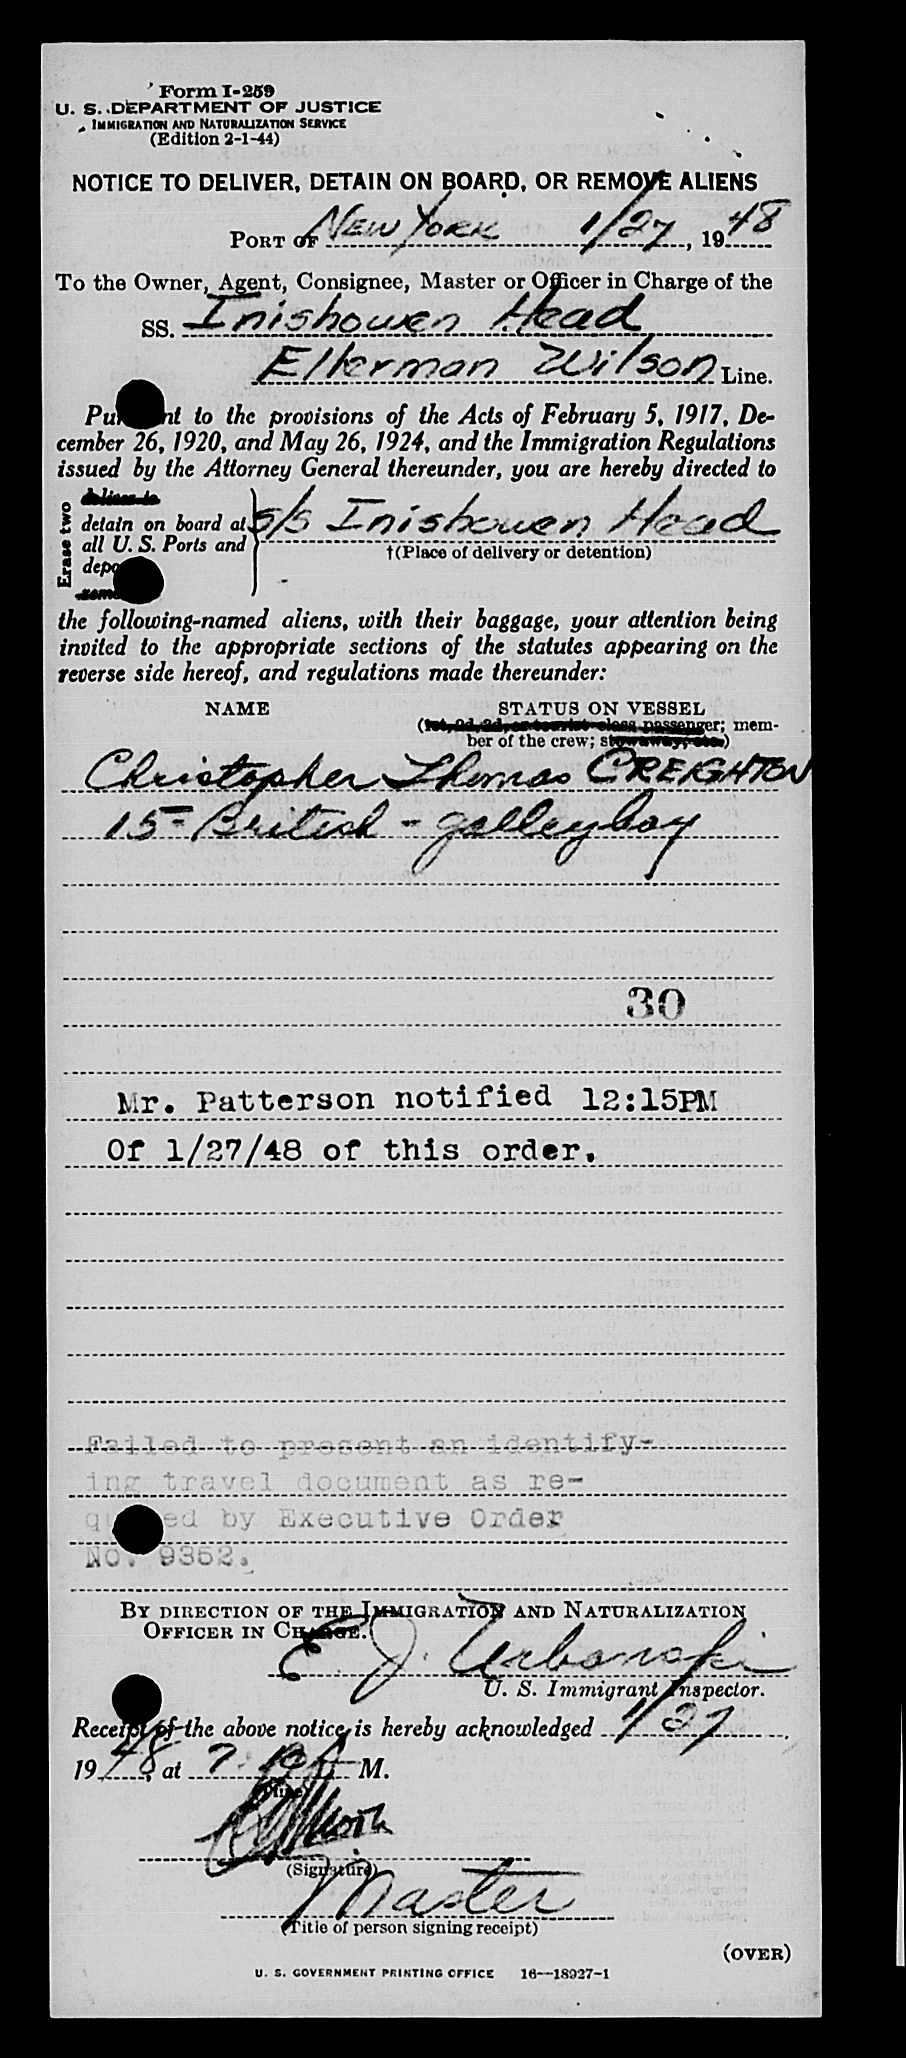 Form I-259
U. S. DEPARTMENT OF JUSTICE
IMMIGRATION AND NATURALIZATION SERVICE
(Edition 2-1-44)
NOTICE TO DELIVER, DETAIN ON BOARD, OR REMOVE ALIENS
PORT OF New York 1/27, 1948
To the Owner, Agent, Consignee, Master or Officer in Charge of the
SS. Inishowen Head
Ellerman Wilson Line.
Pu nt to the provisions of the Acts of February 5, 1917, De-
cember 26, 1920, and May 26, 1924, and the Immigration Regulations
issued by the Attorney General thereunder, you are hereby directed to
Erase two
deliver to
detain on board at
all U. S. Ports and
depo
s/s Inishowen Head
†(Place of delivery or detention)
the following-named aliens, with their baggage, your attention being
invited to the appropriate sections of the statutes appearing on the
reverse side hereof, and regulations made thereunder:
NAME STATUS ON VESSEL
(1st, 2d, 3d, or tourist class passenger; mem-
ber of the crew; stowaway, etc.)
Christopher Thomas CREIGHTON
15 - British - galleyboy
30
Mr. Patterson notified 12:15PM
Of 1/27/48 of this order.
Failed to present an identify-
ing travel document as re-
qu ed by Executive Order
NO. 9352.
BY DIRECTION OF THE IMMIGRATION AND NATURALIZATION
OFFICER IN CHARGE.
E. J. Urbanski
U. S. Immigrant Inspector.
Receipt of the above notice is hereby acknowledged 1/27,
1948, at M.
(Time)
(Signature)
Master
(Title of person signing receipt)
(OVER)
U. S. GOVERNMENT PRINTING OFFICE 16—18927-1